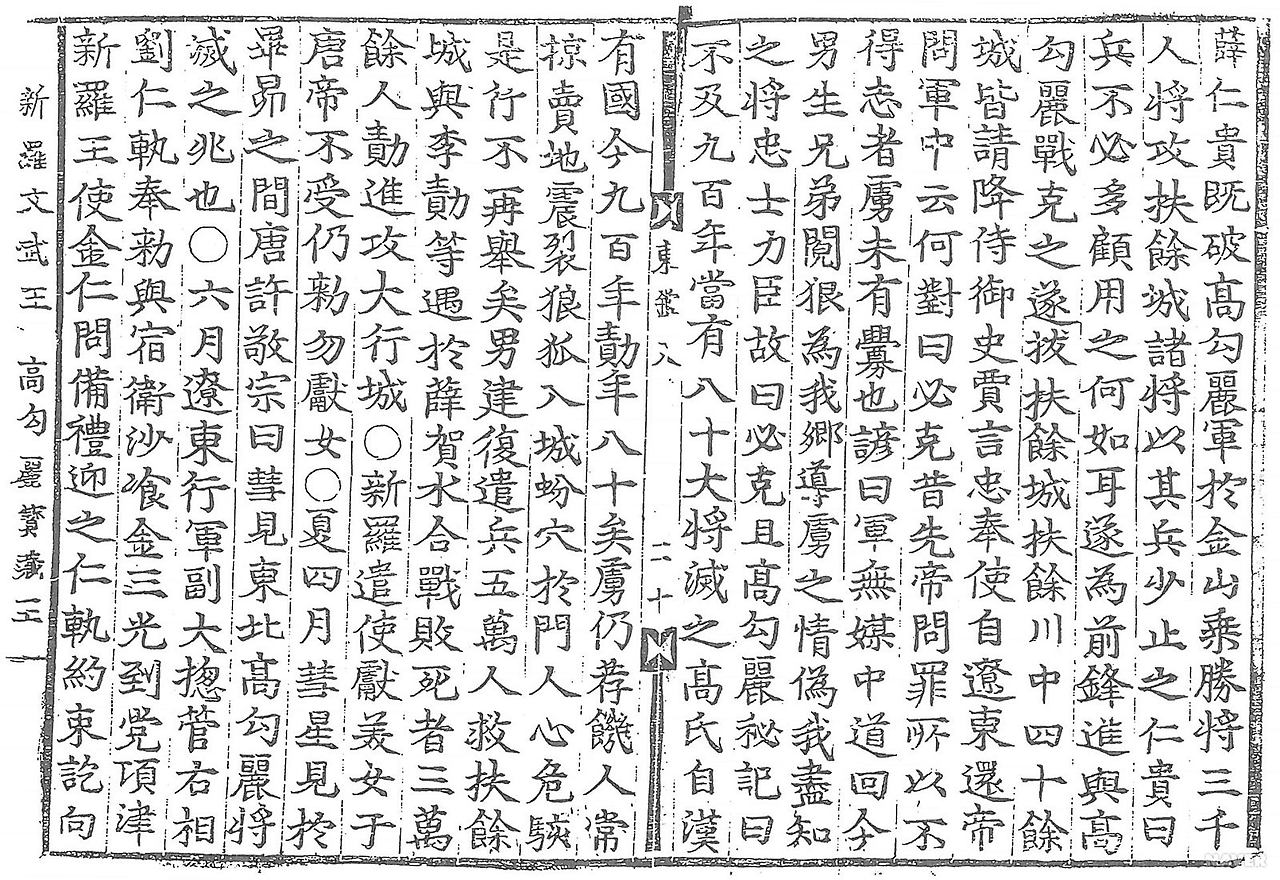 薛仁貴既破高勾麗軍於金山乘勝將三千
人將攻扶餘城諸將以其兵少止之仁貴曰
兵不必多顧用之何如耳遂為前鋒進與高
勾麗戰克之遂拔扶餘城扶餘川中四十餘
城皆請降侍御史賈言忠奉使自遼東還帝
問軍中云何對曰必克昔先帝問罪所以不
得志者虜未有釁也諺曰軍無媒中道回今
男生兄弟鬩狠為我鄉導虜之情偽我盡知
之將忠士力臣故曰必克且高勾麗秘記曰
不及九百年當有八十大將滅之高氏自漢
東鑑八 二十
有國今九百年勣年八十矣虜仍荐饑人常
掠賣地震裂狼狐入城蚡穴於門人心危駭
是行不再舉矣男建復遣兵五萬人救扶餘
城與李勣等遇於薛賀水合戰敗死者三萬
餘人勣進攻大行城○新羅遣使獻美女于
唐帝不受仍勑勿獻女○夏四月彗星見於
畢昴之間唐許敬宗曰彗見東北高勾麗將
滅之兆也○六月遼東行軍副大摠管右相
劉仁軌奉勑與宿衛沙飡金三光到党項津
新羅王使金仁問備禮迎之仁軌約束訖向
新羅文武王 高勾麗寶藏王
NAVER